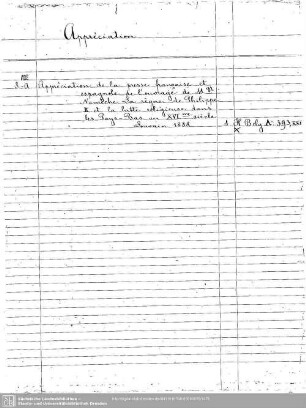 Appréciation
Appréciation de la presse française et
espagnole de l'ouvrage de M
Namèche Le règne de Philippe
II et la lutte religieuse dans
les Pays-Bas au XVI me siècle
Louvain
H. Belg. A. 393,
Sächsische Landesbibliothek -
Staats- und Universitätsbibliothek Dresden